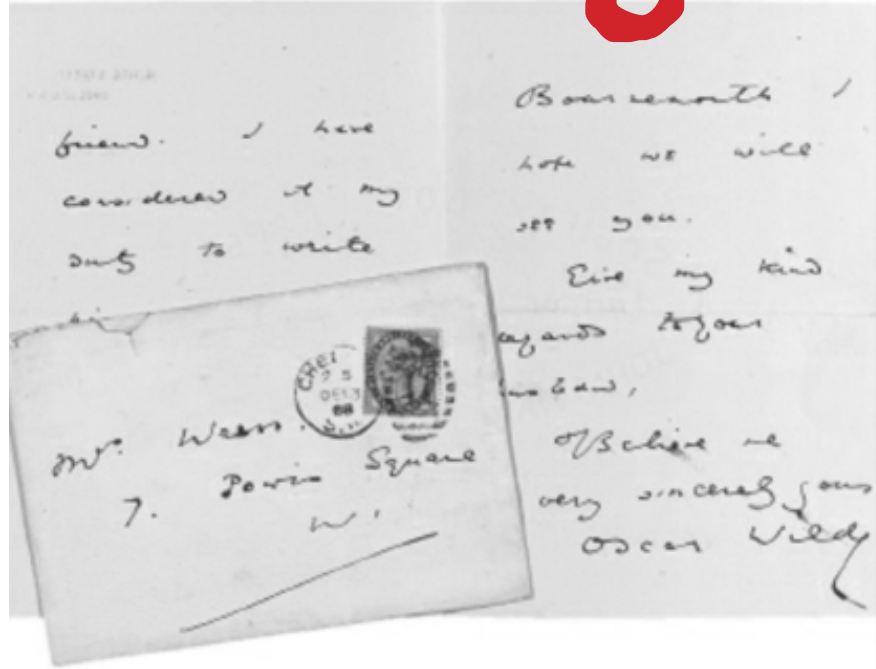 friend. I have
considered it my
duty to write
Bournemouth I
hope we will
see you.
Give my kind
regards to your
husband,
Believe me
very sincerely yours
Oscar Wilde
7. Powis Square
W.
DE 13
88